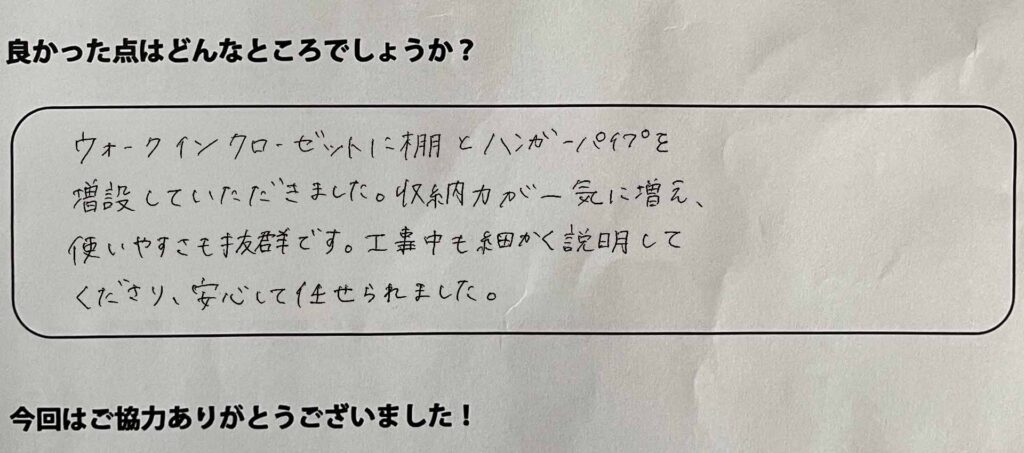 良かった点はどんなところでしょうか？
ウォークインクローゼットに棚とハンガーパイプを
増設していただだきました。収納力が一気に増え、
使いやすさも抜群です。工事中も細かく説明して
くださり、安心して任せられました。
今回はご協力ありがとうございました！